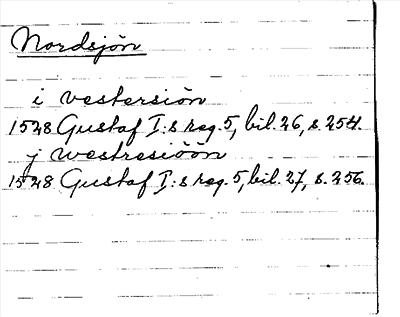 Nordsjön
i vestersiön
1528 Gustaf I:s reg. 5, bil. 26, s. 254.
j westresiöön
1528 Gustaf I:s reg. 5, bil. 27, s. 256.